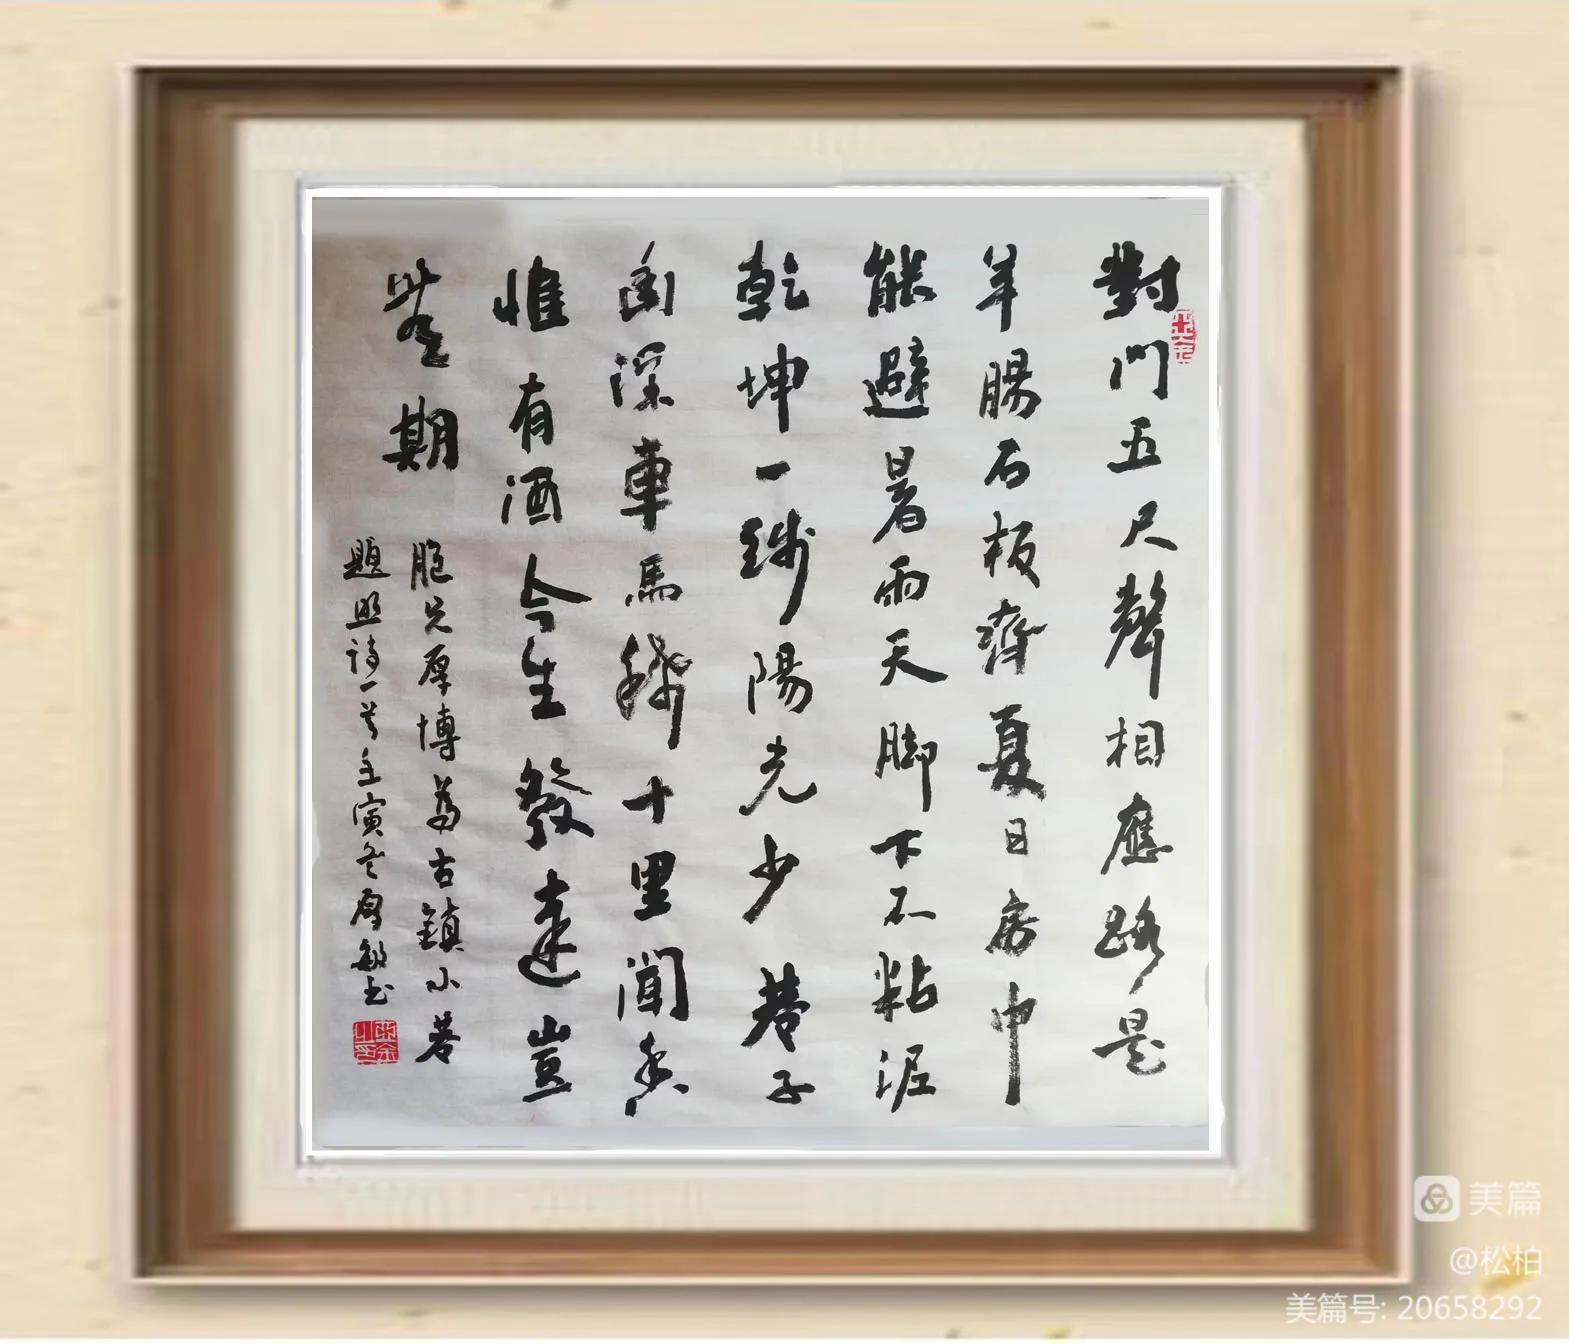 對門五尺聲相應路是
羊腸石板齊夏日房中
能避暑雨天脚下不粘泥
乾坤一线陽光少巷子
幽深車馬稀十里聞香
惟有酒今生發達豈
無期
胞兄厚博為古鎮小巷
題照詩一首壬寅冬厚敏书
美篇
@松柏
美篇号: 20658292